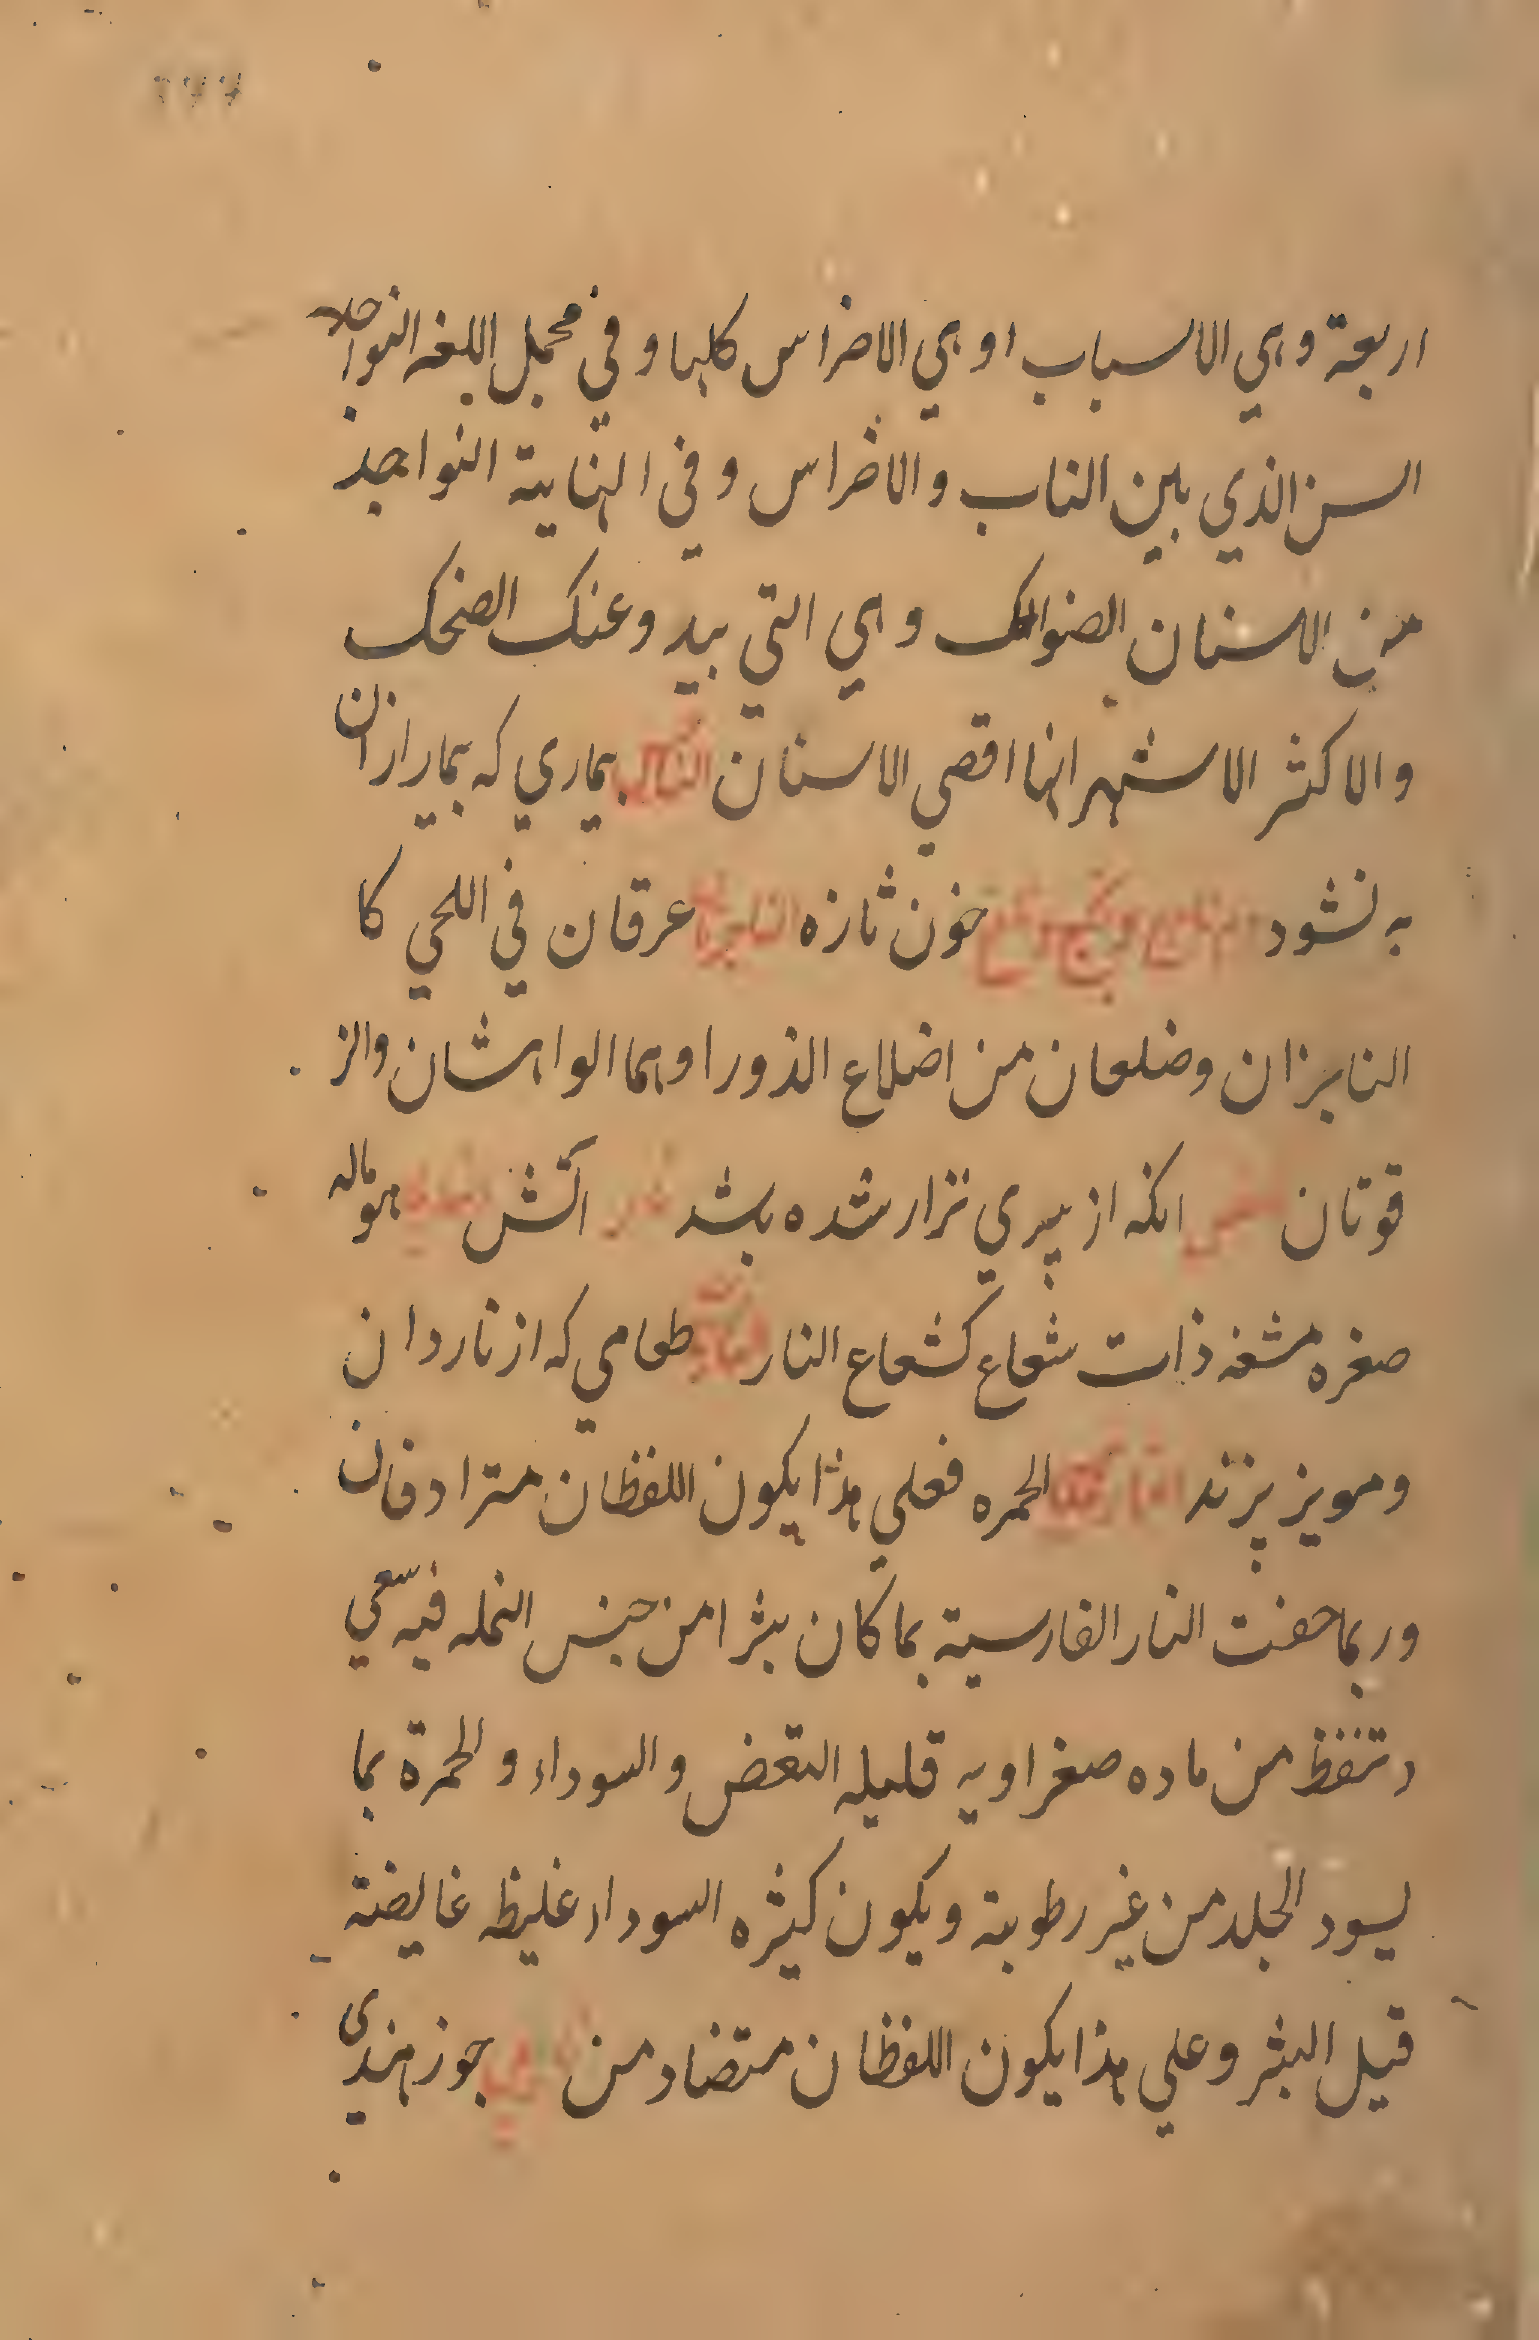 اربعة وهي الاسباب او هي الاضراس كلها و في مجمل اللغه النواجد
السن الذي بين الناب والاضراس و في النهاية النواجذ
من الاسنان الضواحك و هي التي يبد و عنك الضحك
والاكثر الاشهر انها اقصي الاسنان بماري كه بيمار ازان
به نشود خون تازه عرقان في اللحي كا
النابزان و ضلعان من اضلاع الذور او هما الواهشان والز
قوتان انكه از پيري نزار شده بشد آتش هو ماله
صغره مشغه ذات شعاع كشعاع النار طعامي كه از نار دان
و مويز پزند الحمره فعلي هذا يكون اللفظان مترادفان
و ربما حفت النار الفارسية بما كان بثرا من جنس النمله فيه سعي
و تنفظ من ماده صفراويه قليله التعض و السوداء و الحمرة بما
يسود الجلد من غير رطوبة و يكون كثيره السوداء غليظه غايضة
قيل البثر و علي هذا يكون اللفظان متضاد من جوز هندى